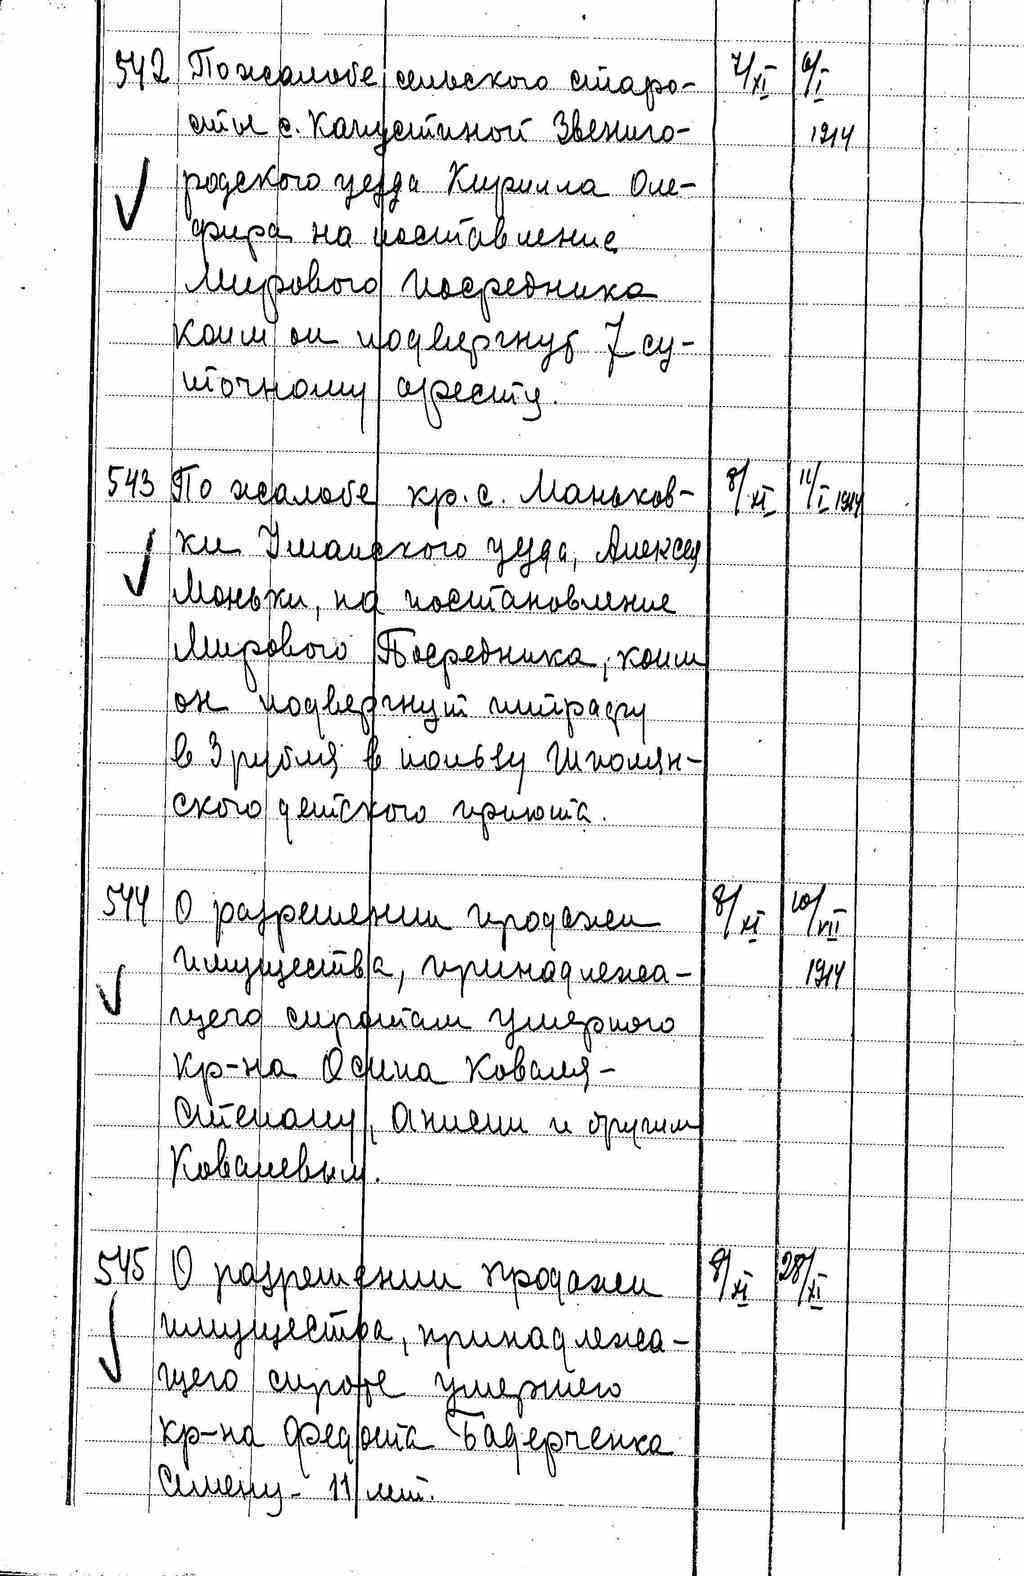 542 По жалобе сельского старо- 7/XI 6/I
сты с. Капустиной Звениго- 1914
родского уезда Кирилла Оле-
фира на поставление
Мирового посредника
коим он подвергнут 7 су-
точному аресту.
543 По жалобе кр. с. Маньков- 8/XI 11/I 1914
ки Уманского уезда, Алексея
Маньки, на постановление
Мирового Посредника, коим
он подвергнут штрафу
в 3 рубля в пользу Шполян-
ского детского приюта.
544 О разрешении продажи 8/XI 10/VII
имущества, принадлежа- 1914
щего сиротам умершего
кр-на Осипа Коваля-
Степану, Анисии и другим
Ковалевым.
545 О разрешении продажи 9/XI 28/XI
имущества, принадлежа-
щего сироте умершего
кр-на Федота Бадерченка
Семену - 11 лет.